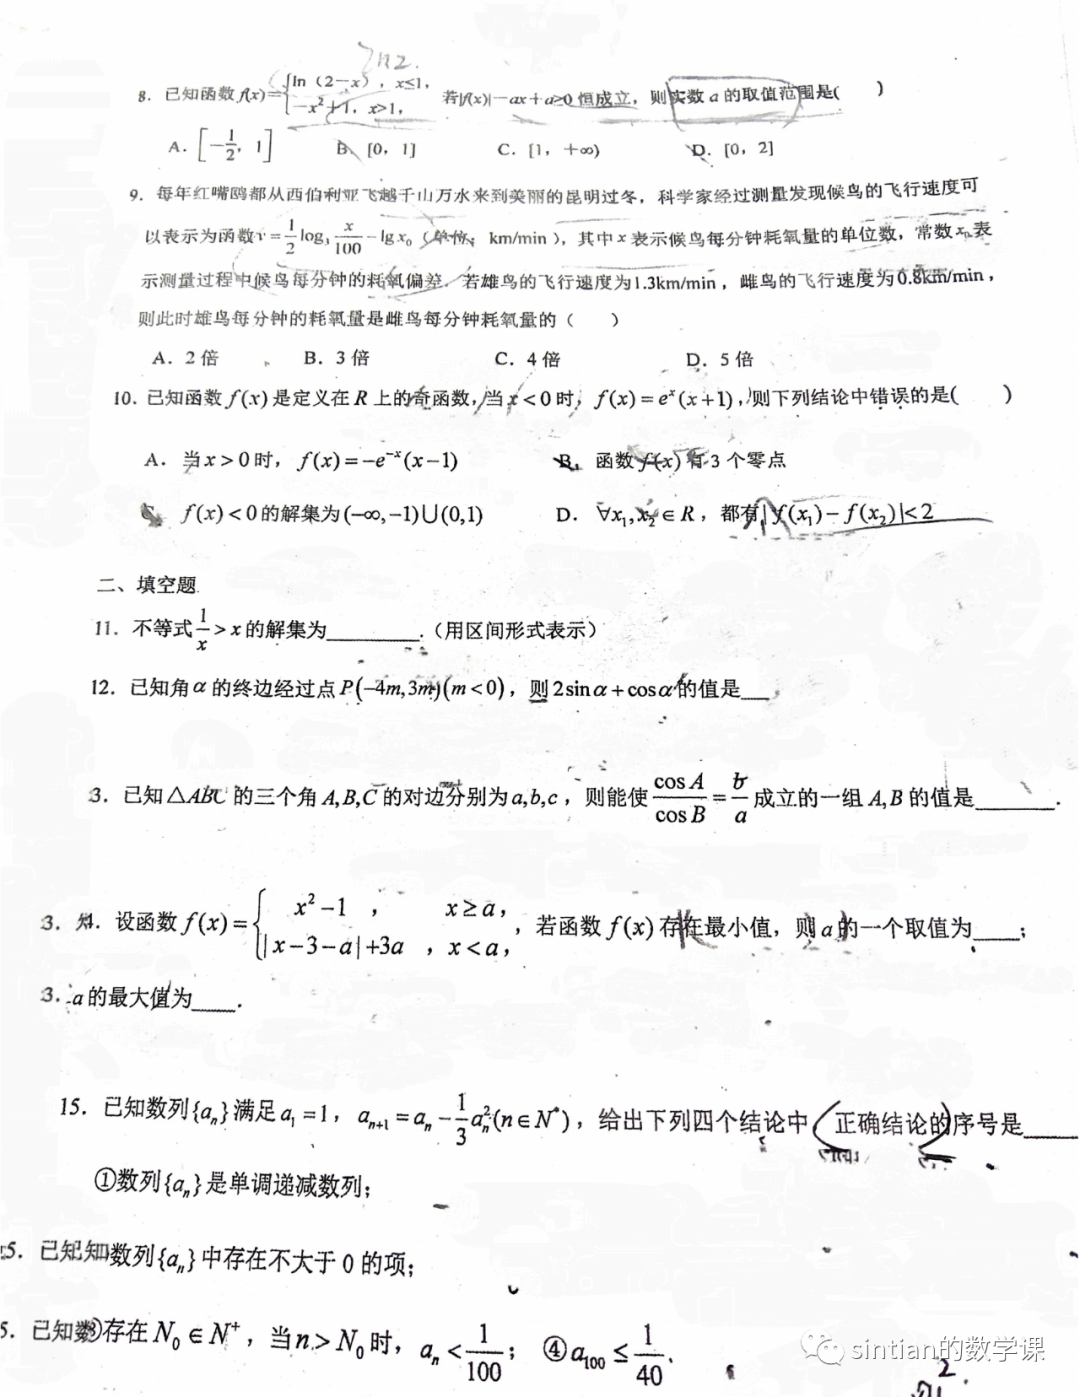 8．已知函数f(x)={ln（2-x），x≤1，
-x²+1，x>1，
若|f(x)|-ax+a≥0恒成立，则实数a的取值范围是(　　)
A．[-1/2，1]　B．[0，1]　C．[1，+∞)　D．[0，2]
9．每年红嘴鸥都从西伯利亚飞越千山万水来到美丽的昆明过冬，科学家经过测量发现候鸟的飞行速度可
以表示为函数v=1/2 log₃ x/100 -lg x₀（单位：km/min），其中x表示候鸟每分钟耗氧量的单位数，常数x₀表
示测量过程中候鸟每分钟的耗氧偏差．若雄鸟的飞行速度为1.3km/min，雌鸟的飞行速度为0.8km/min，
则此时雄鸟每分钟的耗氧量是雌鸟每分钟耗氧量的（　　）
A．2倍　B．3倍　C．4倍　D．5倍
10．已知函数f(x)是定义在R上的奇函数，当x<0时，f(x)=eˣ(x+1)，则下列结论中错误的是(　　)
A．当x>0时，f(x)=-e⁻ˣ(x-1)　B．函数f(x)有3个零点
f(x)<0的解集为(-∞,-1)∪(0,1)　D．∀x₁,x₂∈R，都有|f(x₁)-f(x₂)|<2
二、填空题
11．不等式1/x>x的解集为_____．（用区间形式表示）
12．已知角α的终边经过点P(-4m,3m)(m<0)，则2sinα+cosα的值是___
3．已知△ABC的三个角A,B,C的对边分别为a,b,c，则能使cosA/cosB=b/a成立的一组A,B的值是_____．
3．4．设函数f(x)={x²-1，x≥a，
|x-3-a|+3a，x<a，
，若函数f(x)存在最小值，则a的一个取值为___；
3．a的最大值为___．
15．已知数列{aₙ}满足a₁=1，aₙ₊₁=aₙ-1/3aₙ²(n∈N*)，给出下列四个结论中，正确结论的序号是____
①数列{aₙ}是单调递减数列；
5．已知数列{aₙ}中存在不大于0的项；
5．已知数③存在N₀∈N⁺，当n>N₀时，aₙ<1/100；④a₁₀₀≤1/40．
sintian的数学课